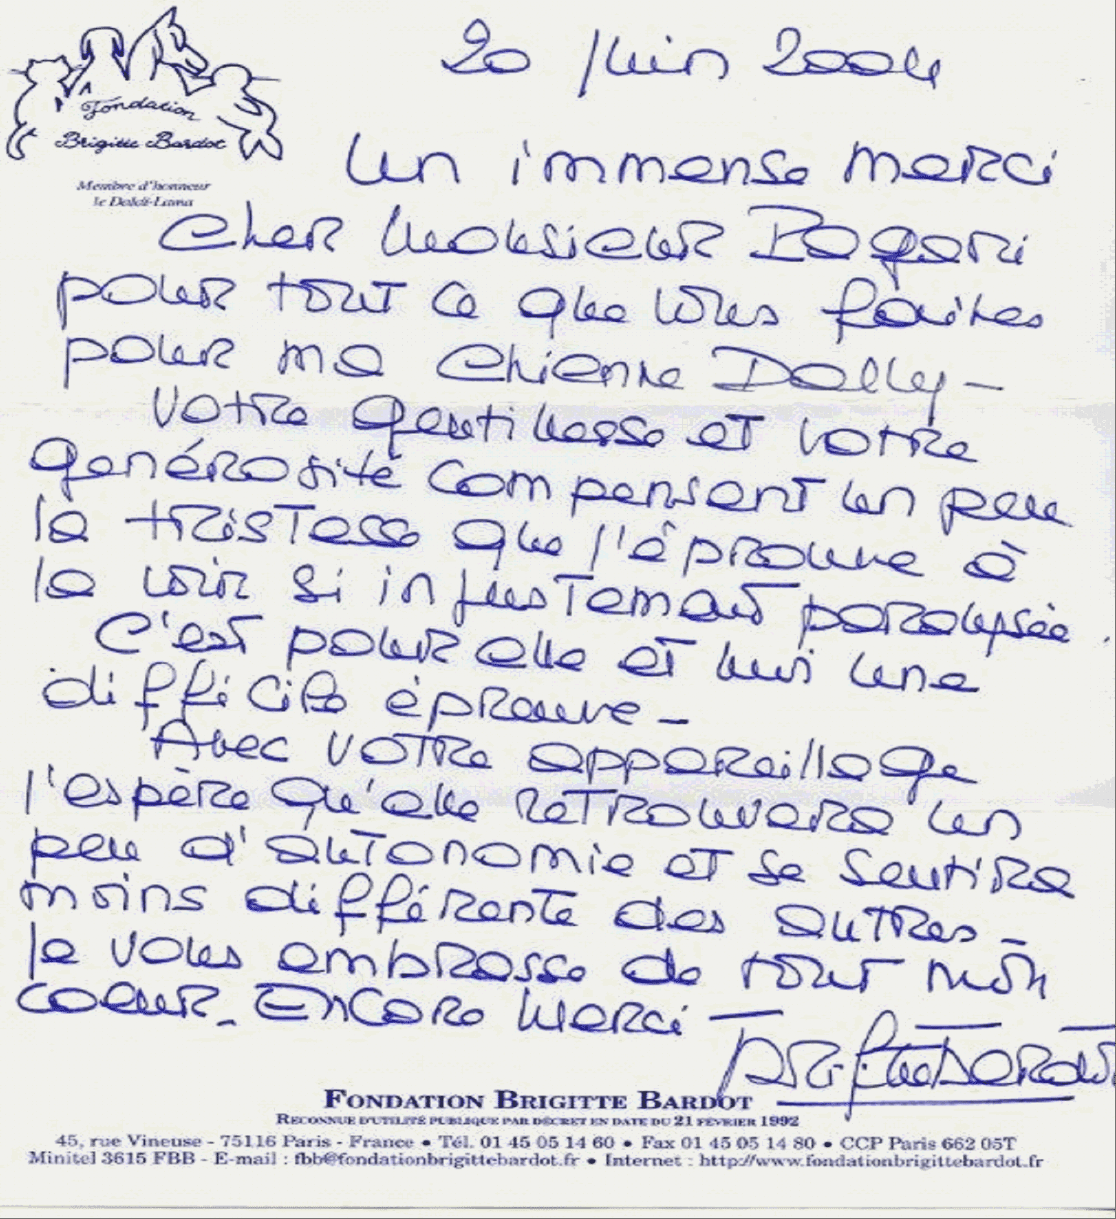 20 Juin 2004
Fondation
Brigitte Bardot
Membre d'honneur
le Dalaï-Lama
Un immense merci
cher Monsieur Bogari
pour tout ce que vous faites
pour ma chienne Dolly -
Votre gentillesse et votre
générosité compensent un peu
la tristesse que j'éprouve à
la voir si injustement paralysée.
C'est pour elle et moi une
difficile épreuve -
Avec votre appareillage
j'espère qu'elle retrouvera un
peu d'autonomie et se sentira
moins différente des autres -
Je vous embrasse de tout mon
coeur. Encore merci
Brigitte Bardot
FONDATION BRIGITTE BARDOT
RECONNUE D'UTILITÉ PUBLIQUE PAR DÉCRET EN DATE DU 21 FÉVRIER 1992
45, rue Vineuse - 75116 Paris - France • Tél. 01 45 05 14 60 • Fax 01 45 05 14 80 • CCP Paris 662 05T
Minitel 3615 FBB - E-mail : fbb@fondationbrigittebardot.fr • Internet : http://www.fondationbrigittebardot.fr